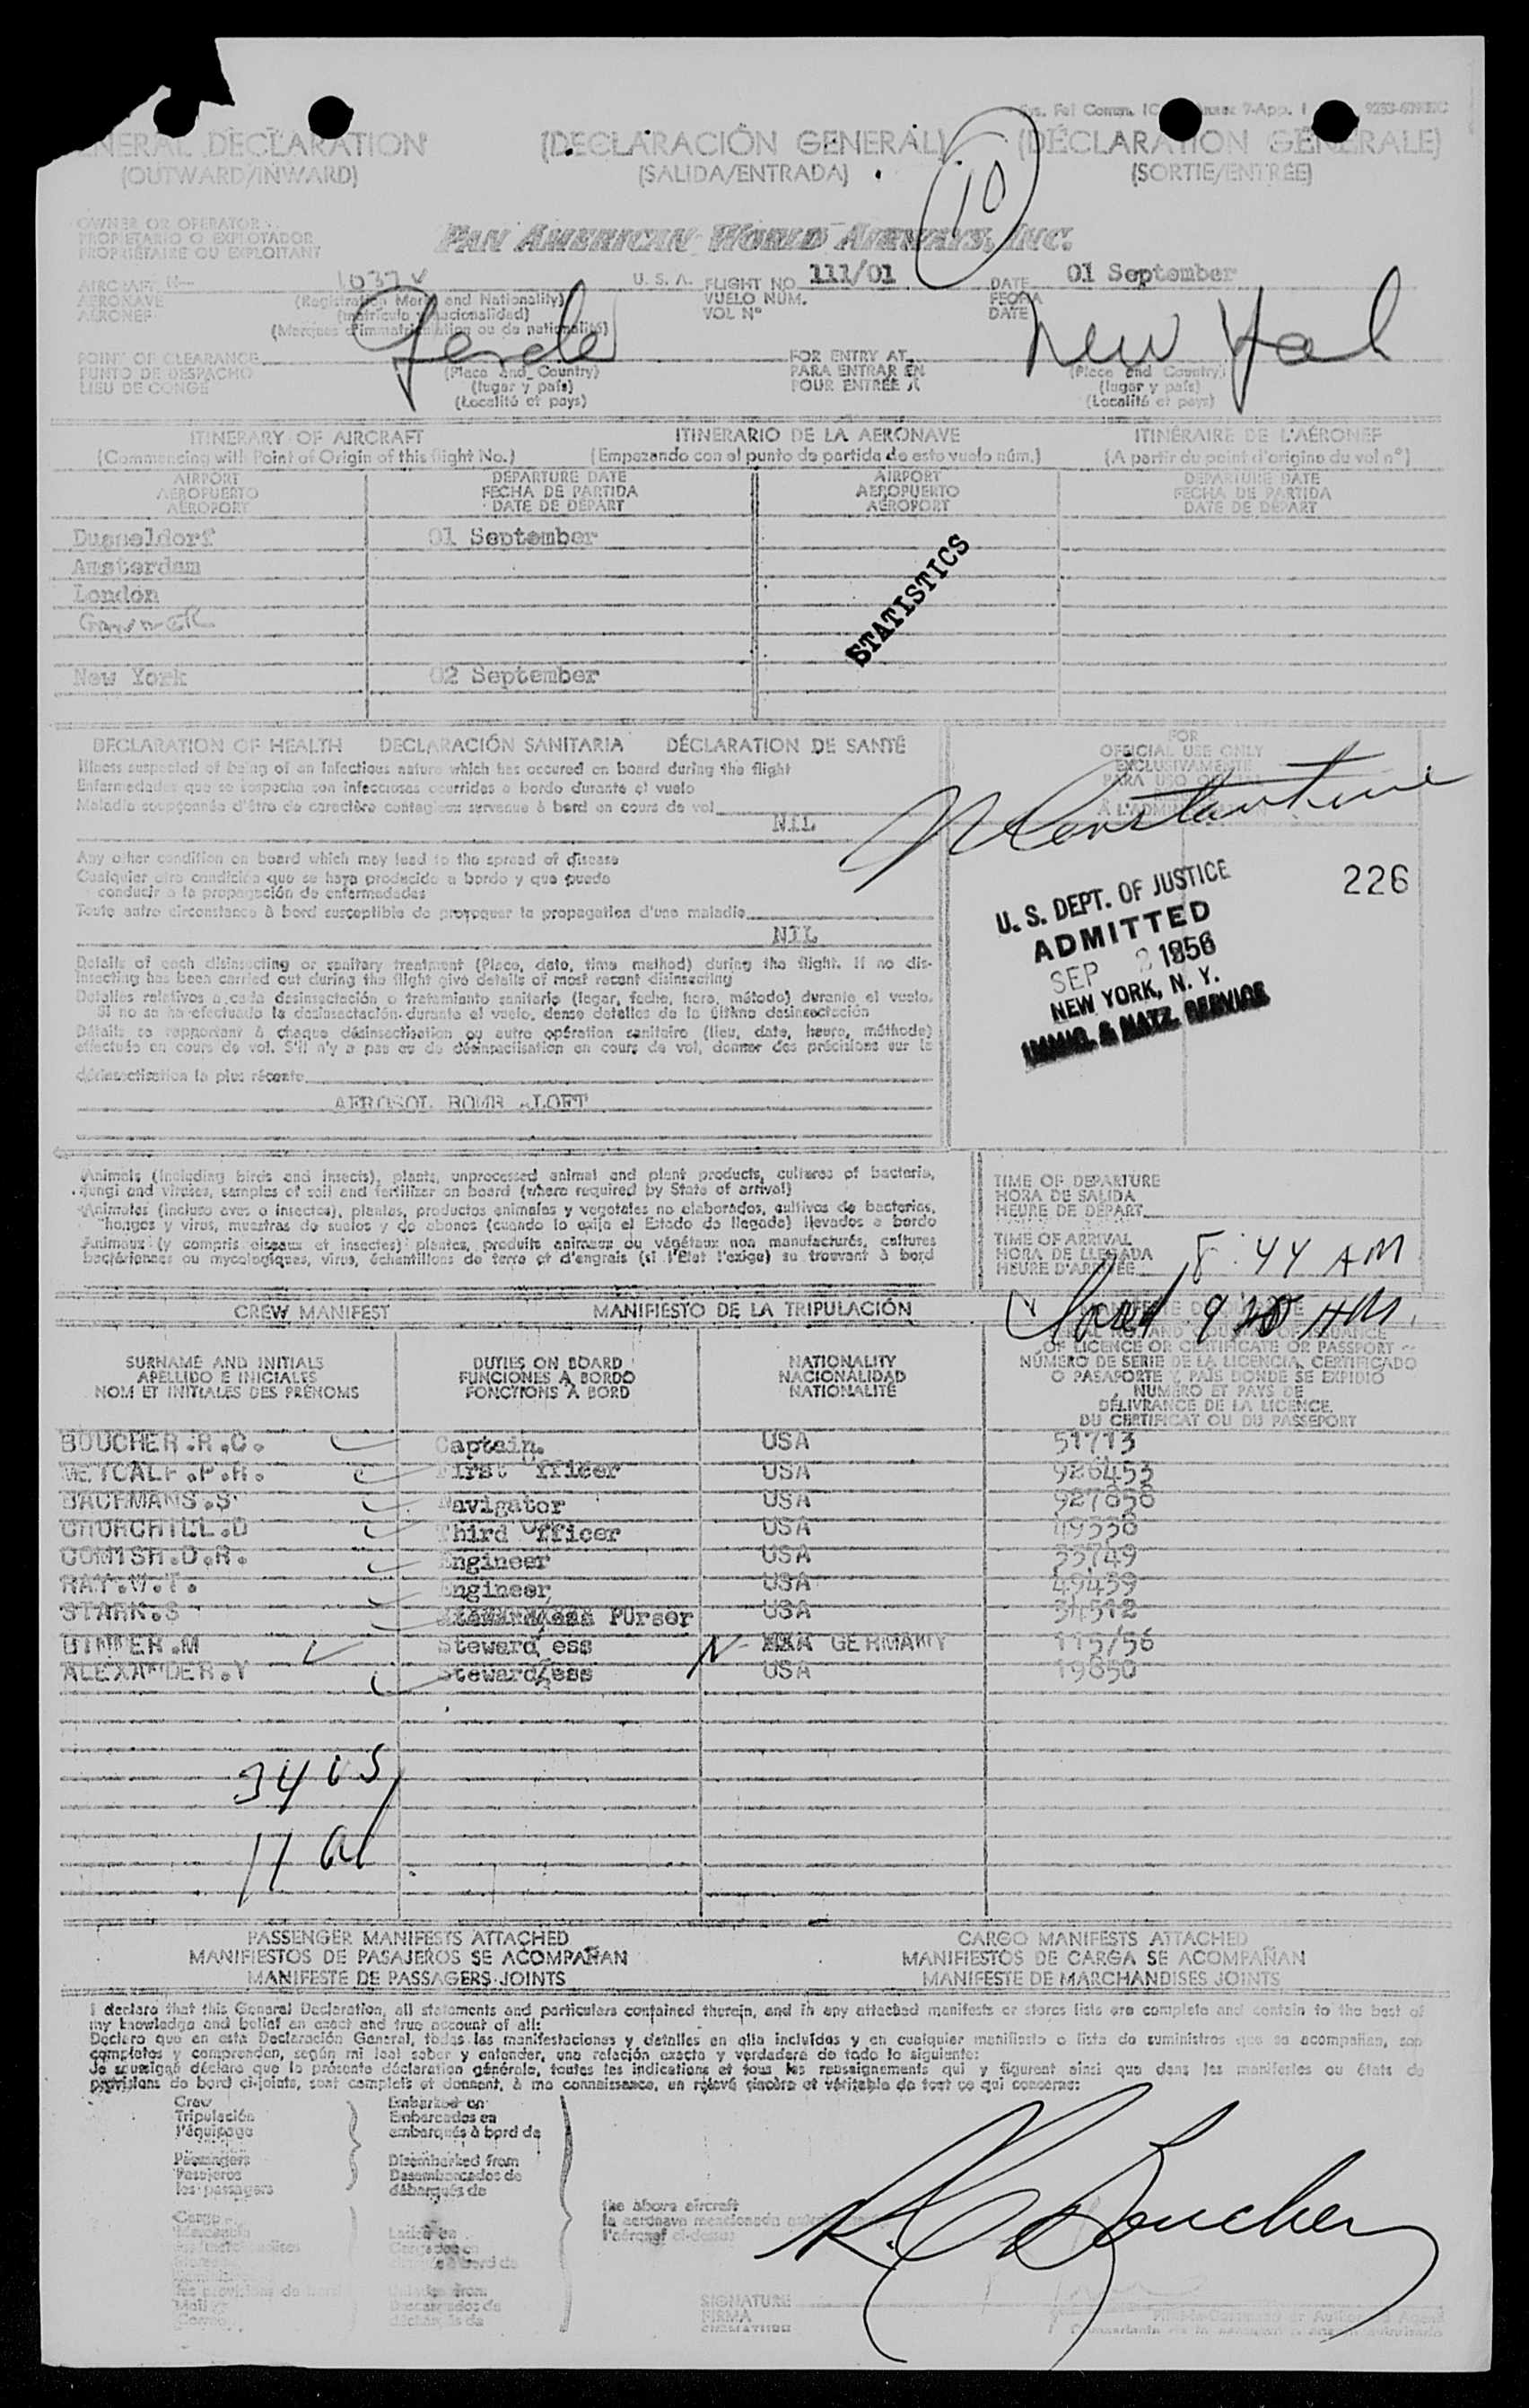 GENERAL DECLARATION (DECLARACIÓN GENERAL) (DÉCLARATION GÉNÉRALE)
(OUTWARD/INWARD) (SALIDA/ENTRADA) (SORTIE/ENTRÉE)
10
OWNER OR OPERATOR
PROPIETARIO O EXPLOTADOR
PROPRIÉTAIRE OU EXPLOITANT
PAN AMERICAN WORLD AIRWAYS, INC.
AIRCRAFT N— 1037V U. S. A. FLIGHT NO. 111/01 DATE 01 September
AERONAVE (Registration Marks and Nationality) VUELO NÚM. FECHA
AÉRONEF (matrícula y nacionalidad) VOL Nº DATE
(Marques d'immatriculation ou de nationalité)
POINT OF CLEARANCE FOR ENTRY AT New York
PUNTO DE DESPACHO (Place and Country) PARA ENTRAR EN (Place and Country)
LIEU DE CONGÉ (lugar y país) POUR ENTRÉE À (lugar y país)
(Localité et pays) (Localité et pays)
ITINERARY OF AIRCRAFT ITINERARIO DE LA AERONAVE ITINÉRAIRE DE L'AÉRONEF
(Commencing with Point of Origin of this flight No.) (Empezando con el punto de partida de esto vuelo núm.) (A partir du point d'origine du vol nº)
AIRPORT DEPARTURE DATE AIRPORT DEPARTURE DATE
AEROPUERTO FECHA DE PARTIDA AEROPUERTO FECHA DE PARTIDA
AÉROPORT DATE DE DÉPART AÉROPORT DATE DE DÉPART
Dusseldorf 01 September
Amsterdam
London
STATISTICS
New York 02 September
DECLARATION OF HEALTH DECLARACIÓN SANITARIA DÉCLARATION DE SANTÉ
Illness suspected of being of an infectious nature which has occured on board during the flight
Enfermedades que se sospecha son infecciosas ocurridas a bordo durante el vuelo
Maladie soupçonnée d'être de caractère contagieux survenue à bord en cours de vol
NIL
Any other condition on board which may lead to the spread of disease
Cualquier otra condición que se haya producido a bordo y que puede
conducir a la propagación de enfermedades
Toute autre circonstance à bord susceptible de provoquer la propagation d'une maladie
NIL
Details of each disinsecting or sanitary treatment (Place, date, time method) during the flight. If no dis-
insecting has been carried out during the flight give details of most recent disinsecting
Detalles relativos a cada desinsectación o tratamiento sanitario (lugar, fecha, hora, método) durante el vuelo.
Si no se ha efectuado la desinsectación durante el vuelo, dense detalles de la última desinsectación
Détails se rapportant à chaque désinsectisation ou autre opération sanitaire (lieu, date, heure, méthode)
effectuée en cours de vol. S'il n'y a pas eu de désinsectisation en cours de vol, donner des précisions sur la
désinsectisation la plus récente
AEROSOL BOMB ALOFT
FOR
OFFICIAL USE ONLY
EXCLUSIVAMENTE
PARA USO OFICIAL
N Constantine
226
U. S. DEPT. OF JUSTICE
ADMITTED
SEP 2 1956
NEW YORK, N. Y.
IMMIG. & NATZ. SERVICE
Animals (including birds and insects), plants, unprocessed animal and plant products, cultures of bacteria,
fungi and viruses, samples of soil and fertilizer on board (where required by State of arrival)
Animales (incluso aves o insectos), plantas, productos animales y vegetales no elaborados, cultivos de bacterias,
hongos y virus, muestras de suelos y de abonos (cuando lo exija el Estado de llegada) llevados a bordo
Animaux (y compris oiseaux et insectes) plantes, produits animaux ou végétaux non manufacturés, cultures
bactériennes ou mycologiques, virus, échantillons de terre et d'engrais (si l'État l'exige) se trouvant à bord
TIME OF DEPARTURE
HORA DE SALIDA
HEURE DE DÉPART
TIME OF ARRIVAL
HORA DE LLEGADA 8:44 AM
HEURE D'ARRIVÉE
CREW MANIFEST MANIFIESTO DE LA TRIPULACIÓN
SURNAME AND INITIALS DUTIES ON BOARD NATIONALITY OF LICENCE OR CERTIFICATE OR PASSPORT
APELLIDO E INICIALES FUNCIONES A BORDO NACIONALIDAD NÚMERO DE SERIE DE LA LICENCIA, CERTIFICADO
NOM ET INITIALES DES PRÉNOMS FONCTIONS À BORD NATIONALITÉ O PASAPORTE Y PAÍS DONDE SE EXPIDIÓ
NUMÉRO ET PAYS DE
DÉLIVRANCE DE LA LICENCE,
DU CERTIFICAT OU DU PASSEPORT
BOUCHER.R.C. Captain USA 51713
METCALF.P.H. First Officer USA 926453
BACHMANS.S Navigator USA
CHURCHILL.D Third Officer USA
COMISH.D.R. Engineer USA
RAY.W.T. Engineer USA 49459
STARK.S Purser USA 34512
Steward ess GERMANY 115/56
ALEXANDER.Y Steward/ess USA 19850
34 US
11 al
PASSENGER MANIFESTS ATTACHED CARGO MANIFESTS ATTACHED
MANIFIESTOS DE PASAJEROS SE ACOMPAÑAN MANIFIESTOS DE CARGA SE ACOMPAÑAN
MANIFESTE DE PASSAGERS JOINTS MANIFESTE DE MARCHANDISES JOINTS
I declare that this General Declaration, all statements and particulars contained therein, and in any attached manifests or stores lists are complete and contain to the best of
my knowledge and belief an exact and true account of all:
Declaro que en esta Declaración General, todas las manifestaciones y detalles en ella incluídos y en cualquier manifiesto o lista de suministros que se acompañan, son
completos y comprenden, según mi leal saber y entender, una relación exacta y verdadera de todo lo siguiente:
Je soussigné déclare que la présente déclaration générale, toutes les indications et tous les renseignements qui y figurent ainsi que dans les manifestes ou états de
provisions de bord ci-joints, sont complets et donnent, à ma connaissance, un relevé sincère et véritable de tout ce qui concerne:
Crew Embarked on
Tripulación Embarcados en
l'équipage embarqués à bord de
Passengers Disembarked from
Pasajeros Desembarcados de
les passagers débarqués de
the above aircraft
Cargo
R. C. Boucher
SIGNATURE
FIRMA